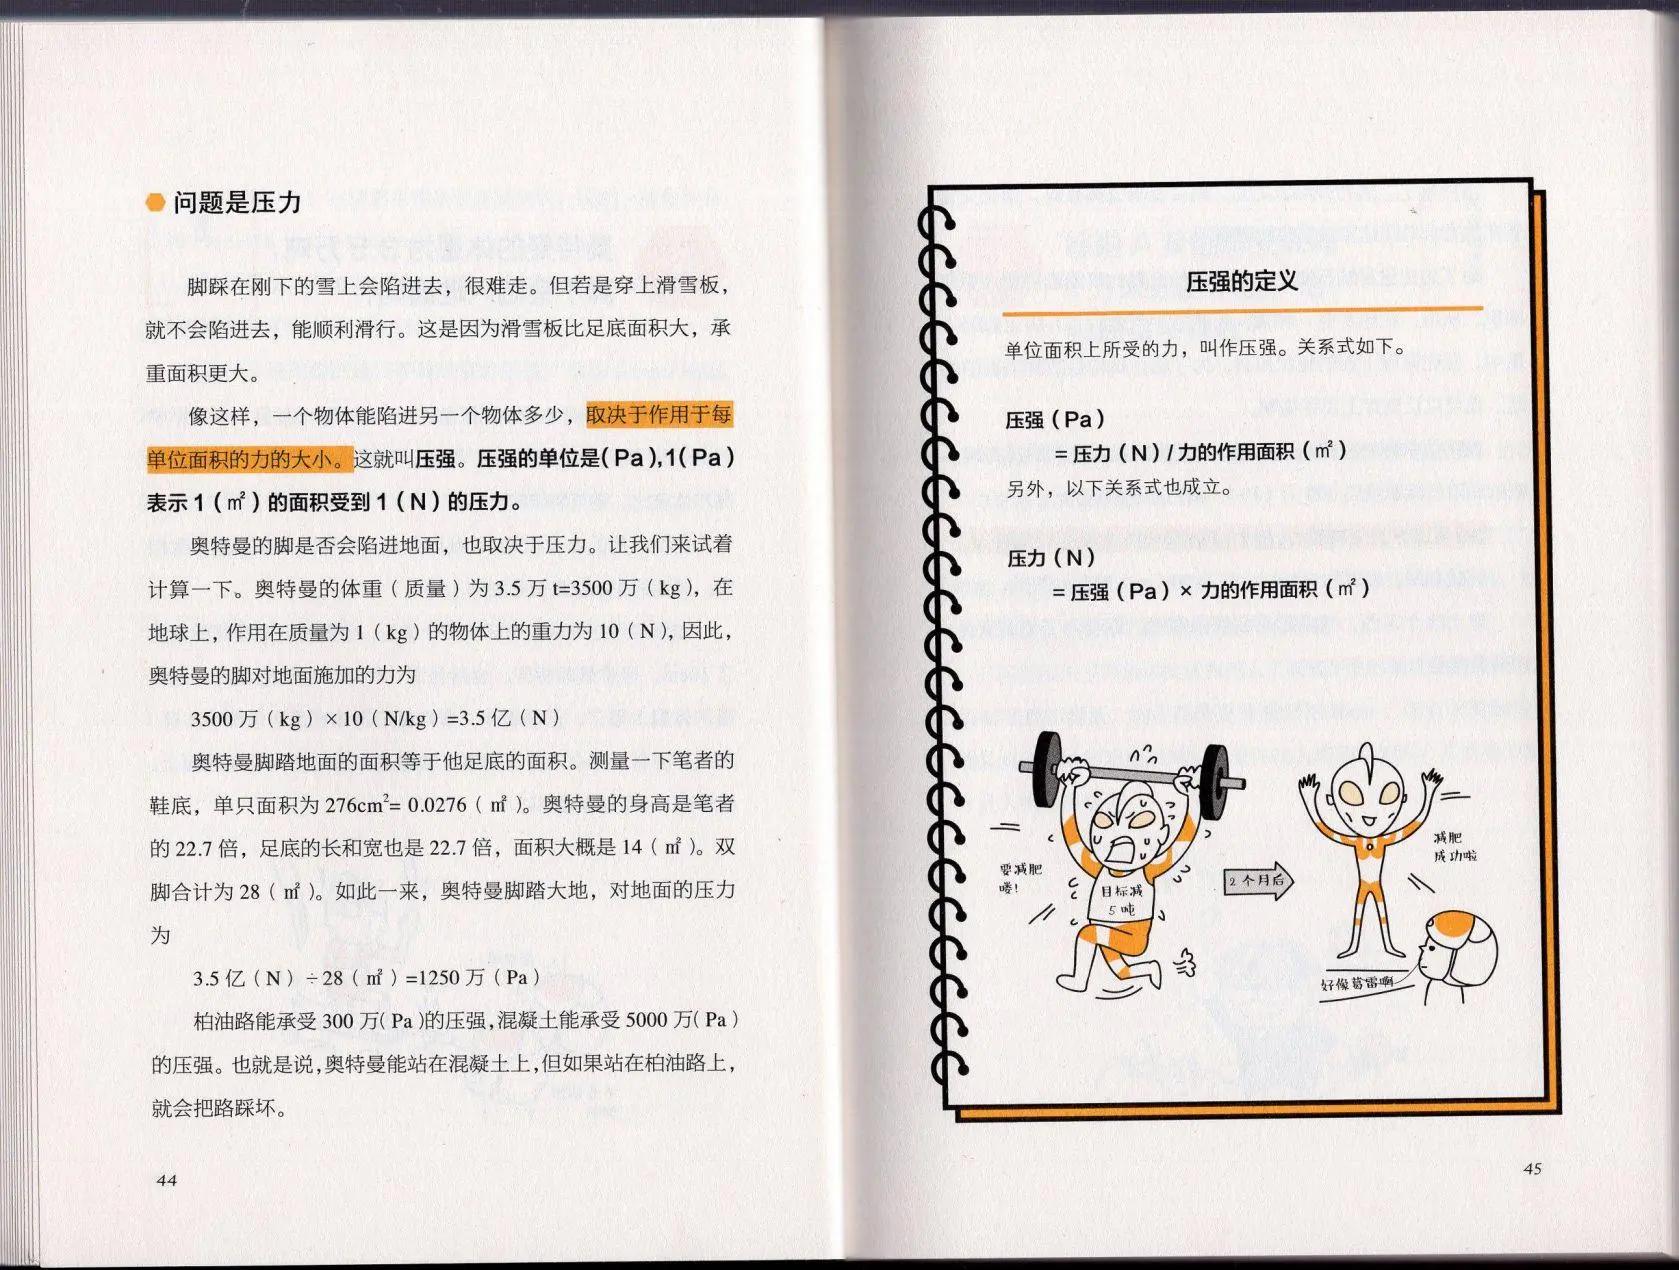 问题是压力
脚踩在刚下的雪上会陷进去，很难走。但若是穿上滑雪板，
就不会陷进去，能顺利滑行。这是因为滑雪板比足底面积大，承
重面积更大。
像这样，一个物体能陷进另一个物体多少，取决于作用于每
单位面积的力的大小。这就叫压强。压强的单位是(Pa),1(Pa)
表示1(㎡)的面积受到1(N)的压力。
奥特曼的脚是否会陷进地面，也取决于压力。让我们来试着
计算一下。奥特曼的体重（质量）为3.5万t=3500万（kg），在
地球上，作用在质量为1（kg）的物体上的重力为10（N），因此，
奥特曼的脚对地面施加的力为
3500万（kg）×10（N/kg）=3.5亿（N）
奥特曼脚踏地面的面积等于他足底的面积。测量一下笔者的
鞋底，单只面积为276cm²= 0.0276（㎡）。奥特曼的身高是笔者
的22.7倍，足底的长和宽也是22.7倍，面积大概是14（㎡）。双
脚合计为28（㎡）。如此一来，奥特曼脚踏大地，对地面的压力
为
3.5亿（N）÷28（㎡）=1250万（Pa）
柏油路能承受300万(Pa)的压强，混凝土能承受5000万(Pa)
的压强。也就是说，奥特曼能站在混凝土上，但如果站在柏油路上，
就会把路踩坏。
44
压强的定义
单位面积上所受的力，叫作压强。关系式如下。
压强（Pa）
= 压力（N）/ 力的作用面积（㎡）
另外，以下关系式也成立。
压力（N）
= 压强（Pa）× 力的作用面积（㎡）
要减肥
喽！
目标减
5吨
2个月后
减肥
成功啦
好像葛雷啊
45